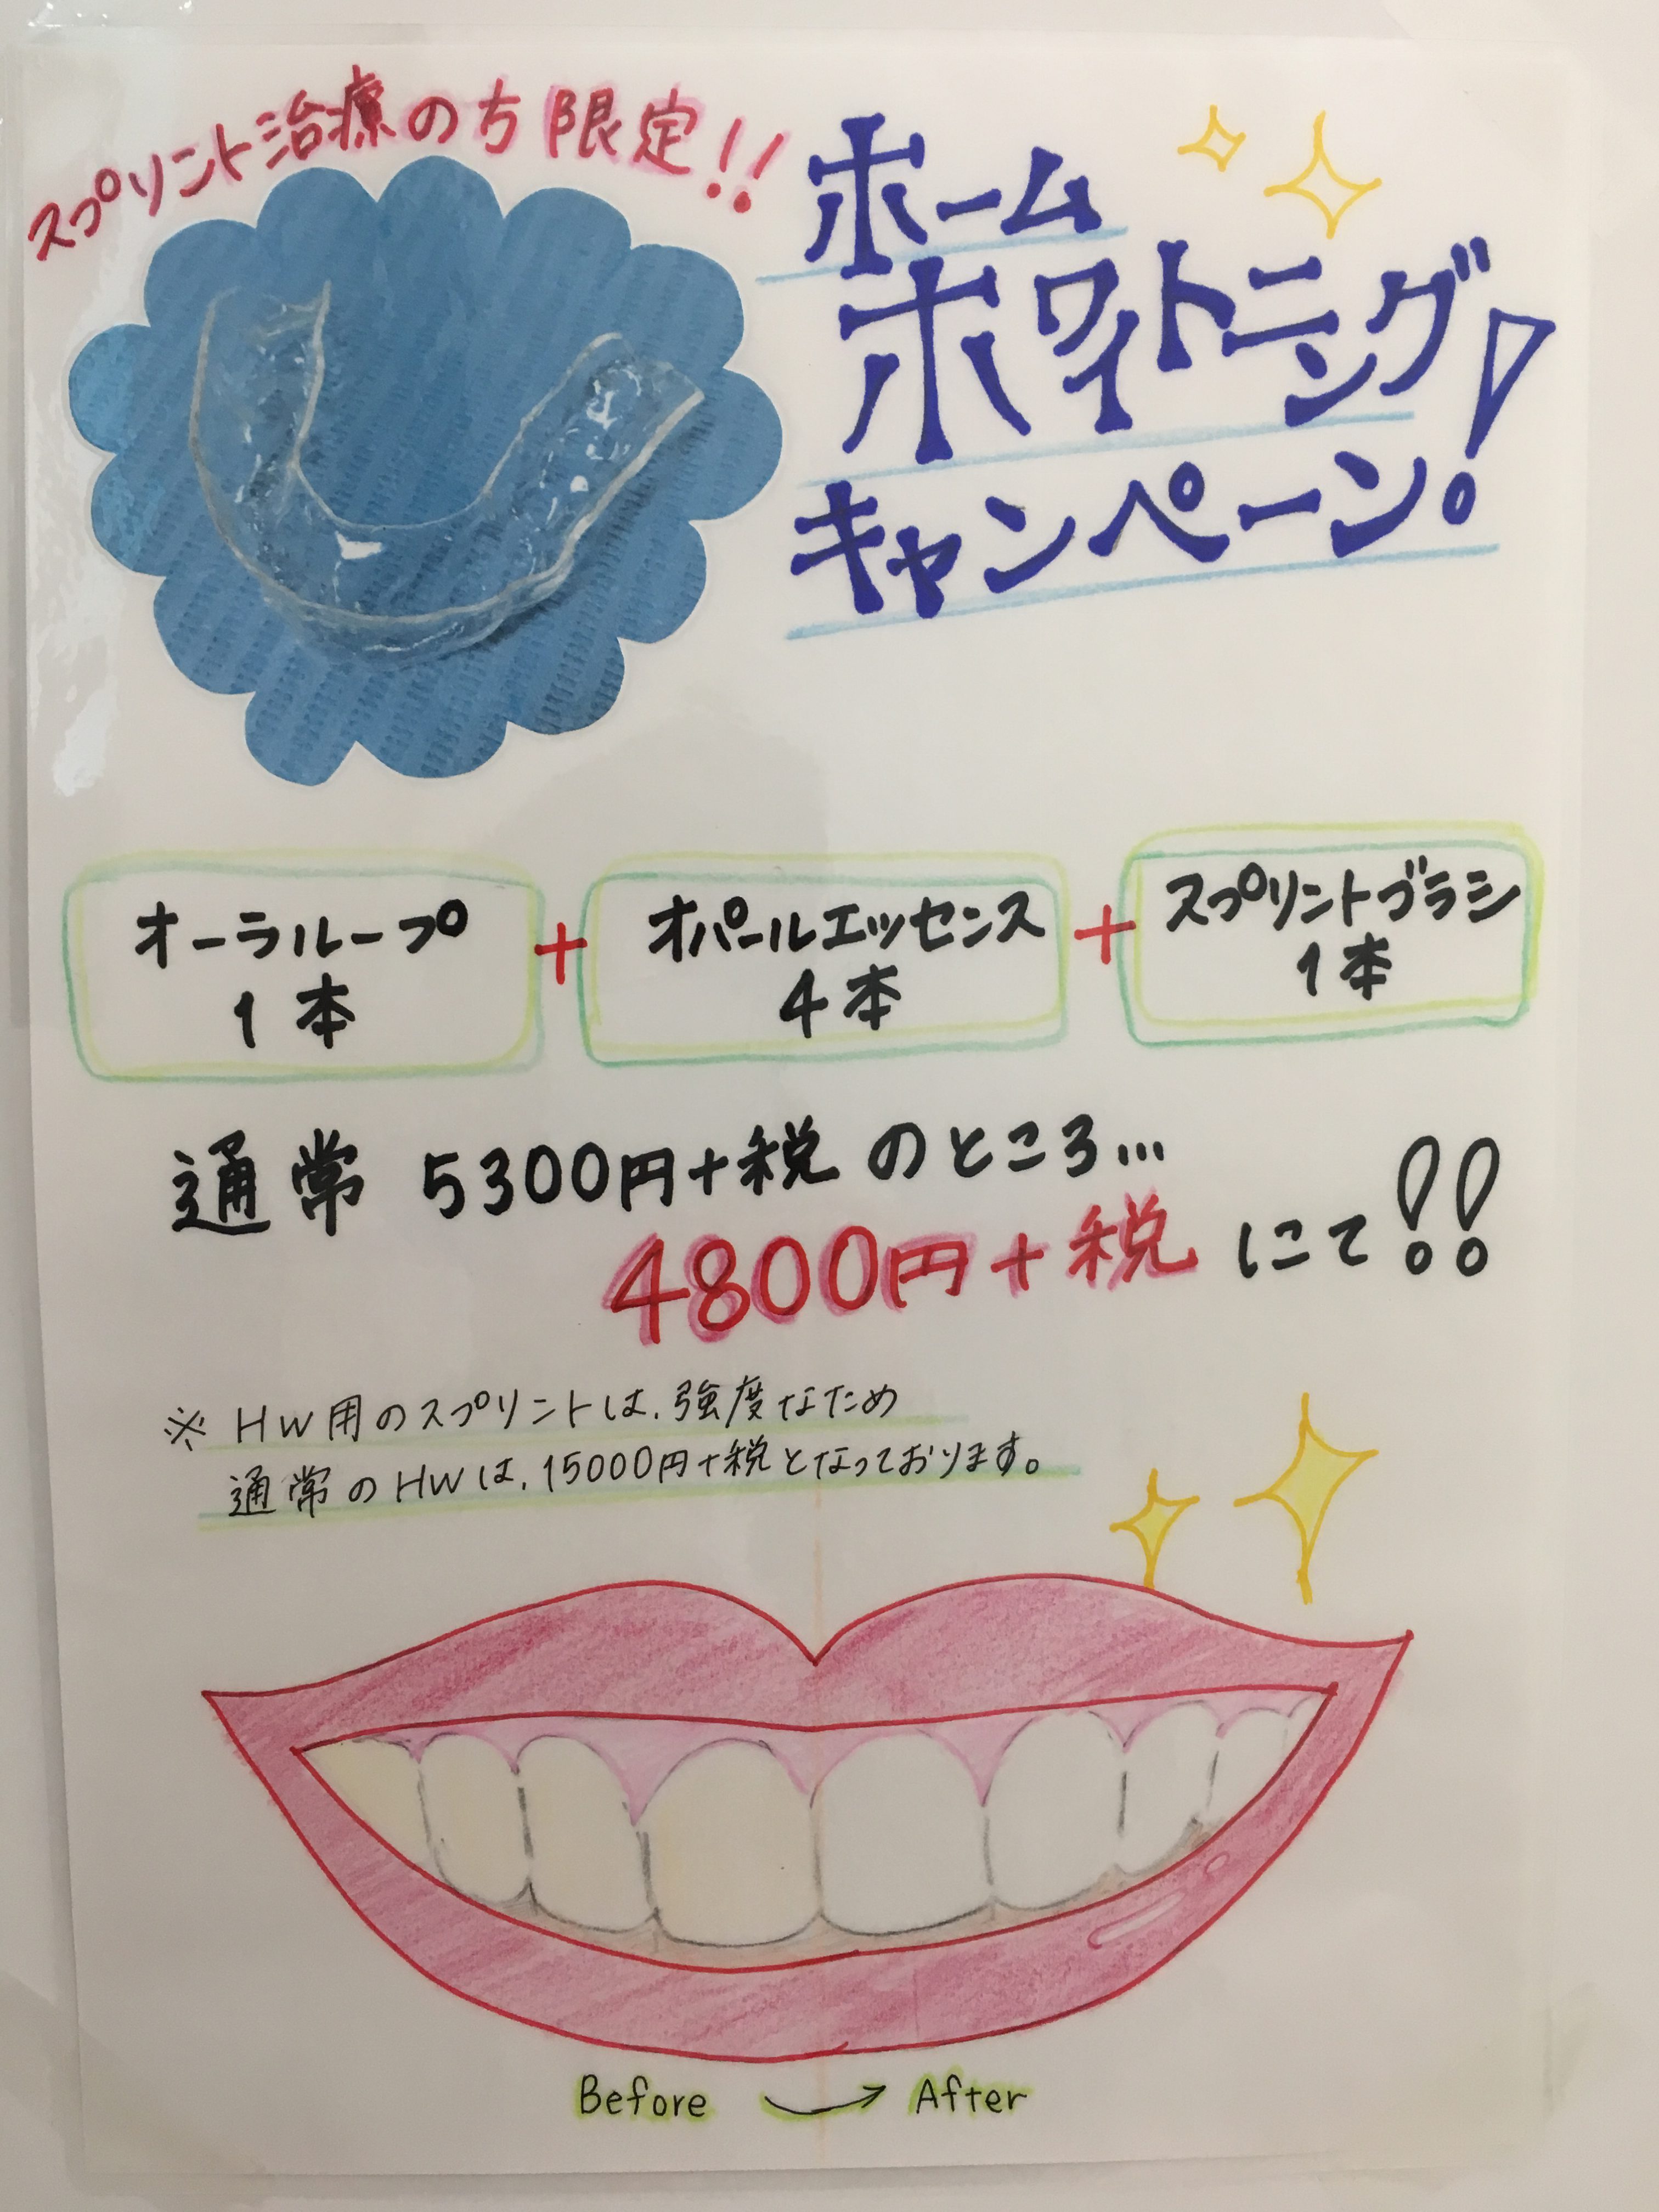 スプリント治療の方限定!!
ホーム
ホワイトニング
キャンペーン!
オーラループ
1本
+
オパールエッセンス
4本
+
スプリントブラシ
1本
通常 5300円+税 のところ…
4800円+税 にて!!
※ HW用のスプリントは、強度なため
通常のHWは、15000円+税となっております。
Before → After